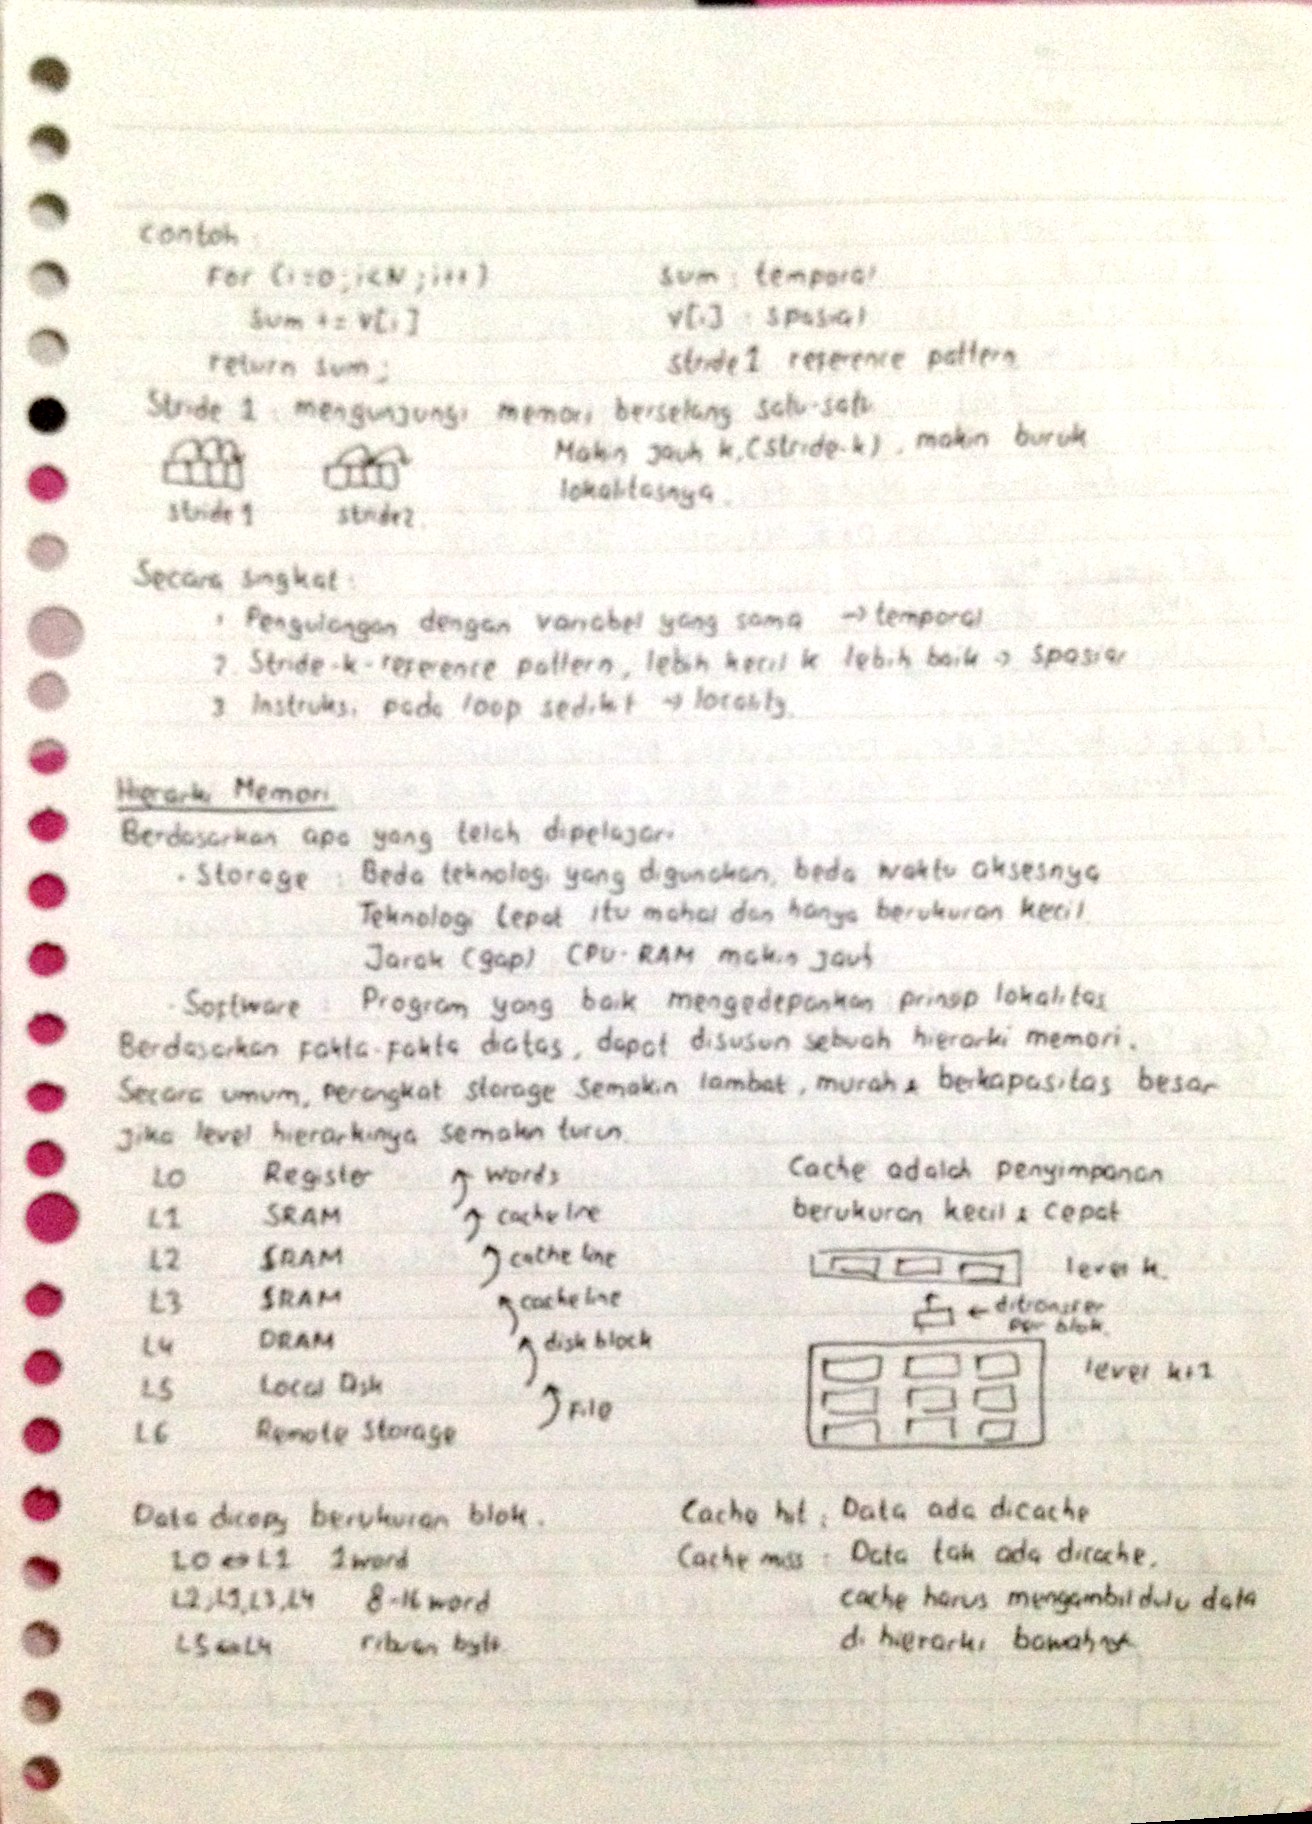 contoh :
For (i=0 ; i<N ; i++)
sum += v[i]
return sum ;
sum : temporal
v[i] : spasial
stride 1 reference pattern
Stride 1 : mengunjungi memori berselang satu-satu
stride 1
stride 2
Makin jauh k, (stride-k), makin buruk
lokalitasnya.
Secara singkat :
1 Pengulangan dengan variabel yang sama → temporal
2. Stride-k-reference pattern, lebih kecil k lebih baik → spasial
3 Instruksi pada loop sedikit → locality.
Hierarki Memori
Berdasarkan apa yang telah dipelajari
· Storage : Beda teknologi yang digunakan, beda waktu aksesnya
Teknologi cepat itu mahal dan hanya berukuran kecil.
Jarak (gap) CPU-RAM makin jauh
· Software : Program yang baik mengedepankan prinsip lokalitas
Berdasarkan fakta-fakta diatas, dapat disusun sebuah hierarki memori.
Secara umum, perangkat storage semakin lambat, murah & berkapasitas besar
jika level hierarkinya semakin turun.
L0 Register words
L1 SRAM cache line
L2 SRAM cache line
L3 SRAM cache line
L4 DRAM disk block
L5 Local Disk File
L6 Remote Storage
Cache adalah penyimpanan
berukuran kecil & cepat
level k.
← ditransfer
per blok.
level k+1
Data dicopy berukuran blok.
L0 ↔ L1 1 word
L2, L1, L3, L4 8-16 word
L5 ↔ L4 ribuan byte
Cache hit : Data ada dicache
Cache miss : Data tak ada dicache.
cache harus mengambil dulu data
di hierarki bawahnya